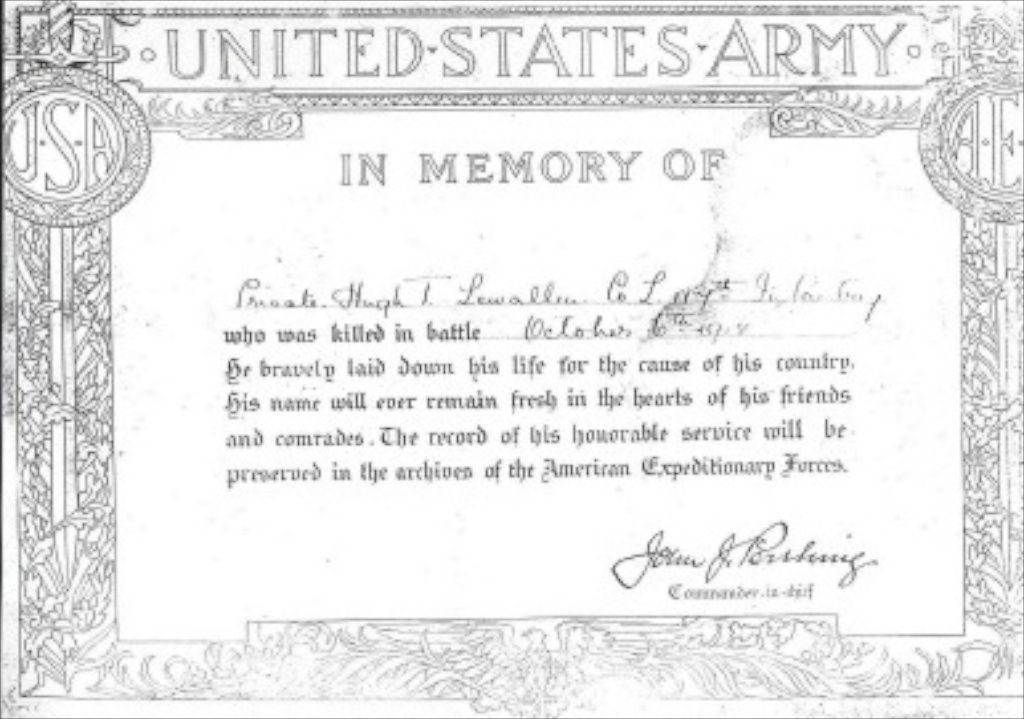 UNITED·STATES·ARMY
U·S·A
A·E·
IN MEMORY OF
Private Hugh T. Lewallen Co L Infantry
who was killed in battle October 6th 1918
He bravely laid down his life for the cause of his country.
His name will ever remain fresh in the hearts of his friends
and comrades. The record of his honorable service will be
preserved in the archives of the American Expeditionary Forces.
John J. Pershing
Commander-in-chief